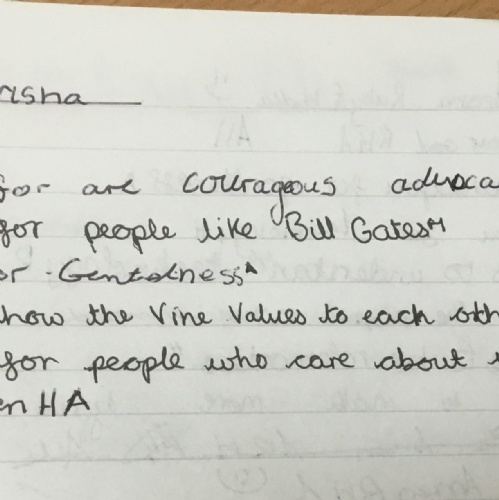 asha
for are courageous advoca
for people like Bill Gates
or Gentelness
how the Vine Values to each oth
for people who care about
en HA